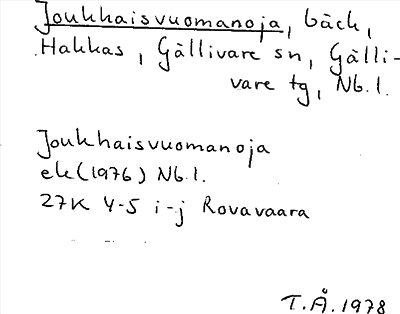 Joukhaisvuomanoja, bäck,
Hakkas, Gällivare sn, Gälli-
vare tg, Nb.l.
Joukhaisvuomanoja
ek(1976) Nb.l.
27K 4-5 i-j Rovavaara
T.Å.1978